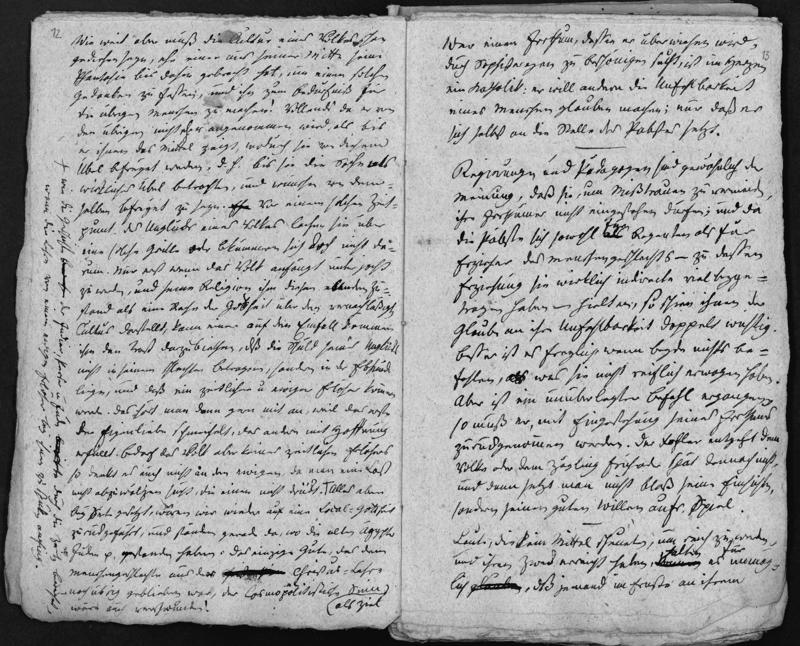 12
Wie weit aber muß die Cultur eines Volkes schon
gediehen seyn, ehe einer aus seiner Mitte seine
Phantasie bis dahin gebracht hat, um einen solchen
Gedanken zu fassen, und ihn zum Bedürfniß für
die übrigen Menschen zu machen! Vollends da er von
den übrigen nicht eher angenommen wird, als bis
er ihnen das Mittel zeigt, wodurch sie von diesem
Übel befreyet werden, d. h. bis sie die Sache als
wirkliches Übel betrachten, und wünschen von dem-
selben befreyet zu seyn. Vor einem solchen Zeit-
punct des Unglücks eines Volkes lachen sie über
eine solche Grille oder bekümmern sich doch nicht da-
rum. Nur erst wenn das Volk anfängt unterjocht
zu werden, und seine Religion ihm diesen elenden Zu-
stand als eine Rache der Gottheit über den vernachläßigten
Cultus darstellt, kann einer auf den Einfall kommen
ihm den Trost darzubiethen, daß die Schuld seines Unglücks
nicht in seinem schlechten Betragen, sondern in der Erbsünde
liege, und daß ein zeitlicher u ewiger Erlöser kommen
werde. Das hört man dann gern mit an, weil das erste
der Eigenliebe schmeichelt, das andere mit Hoffnung
erfüllt. Bedarf das Volk aber keines zeitlichen Erlösers
so denkt es auch nicht an den ewigen, da man eine Last
nicht abzuwälzen sucht, die einen nicht drückt. Alles aber
bey Seite gesetzt, wären wir wieder auf eine Local-Gottheit
zurückgeführt, und ständen gerade da, wo die alten Aegypter
Juden p. gestanden haben: das einzige Gute, das dem
Menschengeschlechte aus der Christus-Lehre
noch übrig geblieben war, der Cosmopolitische Sinn,
wäre auch verschwunden!
(als Ziel
13
Wer einen Irrthum, dessen er überwiesen wird,
durch Sophistereyen zu beschönigen sucht, ist im Herzen
ein Katholik: er will andern die Unfehlbarkeit
eines Menschen glauben machen; nur daß er
sich selbst an die Stelle des Pabstes setzt.
Regierungen und Pädagogen sind gewöhnlich der
Meinung, daß sie, um Mißtrauen zu vermeiden,
ihre Irrthümer nicht eingestehen dürfen; und da
die Päbste sich sowohl für Regenten als für
Erzieher des Menschengeschlechts – zu dessen
Erziehung sie wirklich indirecte viel beyge-
tragen haben – hielten, so schien ihnen der
Glaube an ihre Unfehlbarkeit doppelt wichtig.
Besser ist es freylich wenn beyde nichts be-
fehlen, was sie nicht reiflich erwogen haben.
Aber ist ein unüberlegter Befehl ergangen,
so muß er, mit Eingestehung seines Irrthums
zurückgenommen werden. Der Fehler entgeht dem
Volke oder dem Zögling früh oder spät dennoch nicht,
und dann setzt man nicht bloß seine Einsichten,
sondern seinen guten Willen aufs Spiel.
Leute, die kein Mittel scheuen, um reich zu werden,
und ihren Zweck erreicht haben, halten es für unmög-
lich, daß jemand im Ernste an ihrem